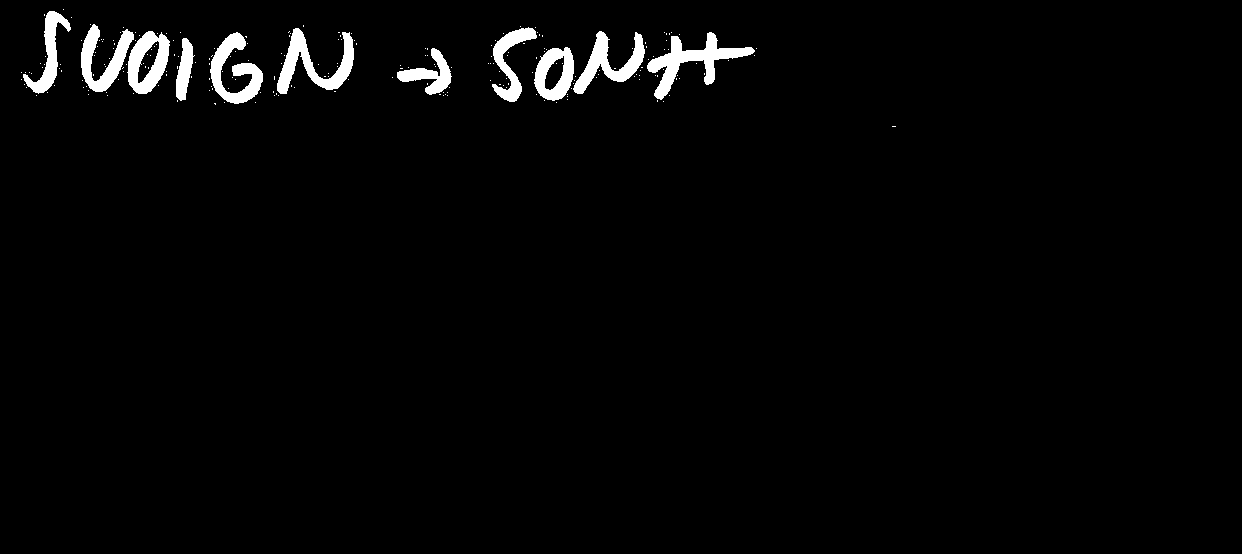 SUOIGN → SONH